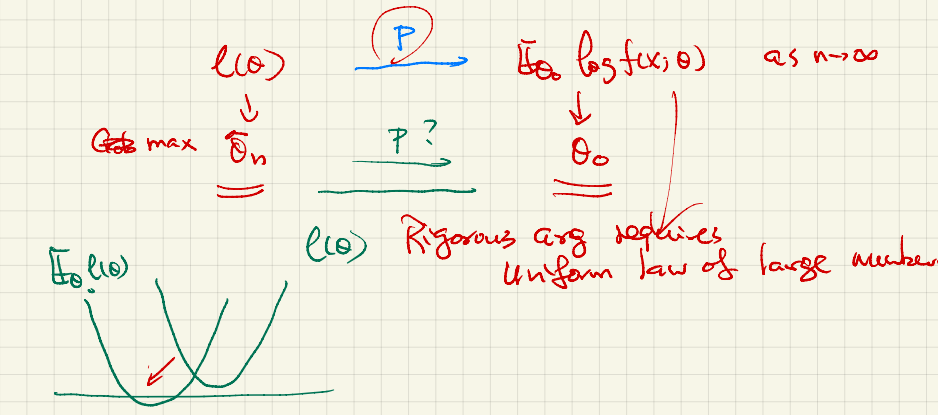 P
ℓ(θ) → 𝔼θ₀ log f(x; θ) as n→∞
↓ ↓
max θ̂ₙ P? → θ₀
ℓ(θ) Rigorous arg requires
𝔼θ₀ ℓ(θ) Uniform law of large number